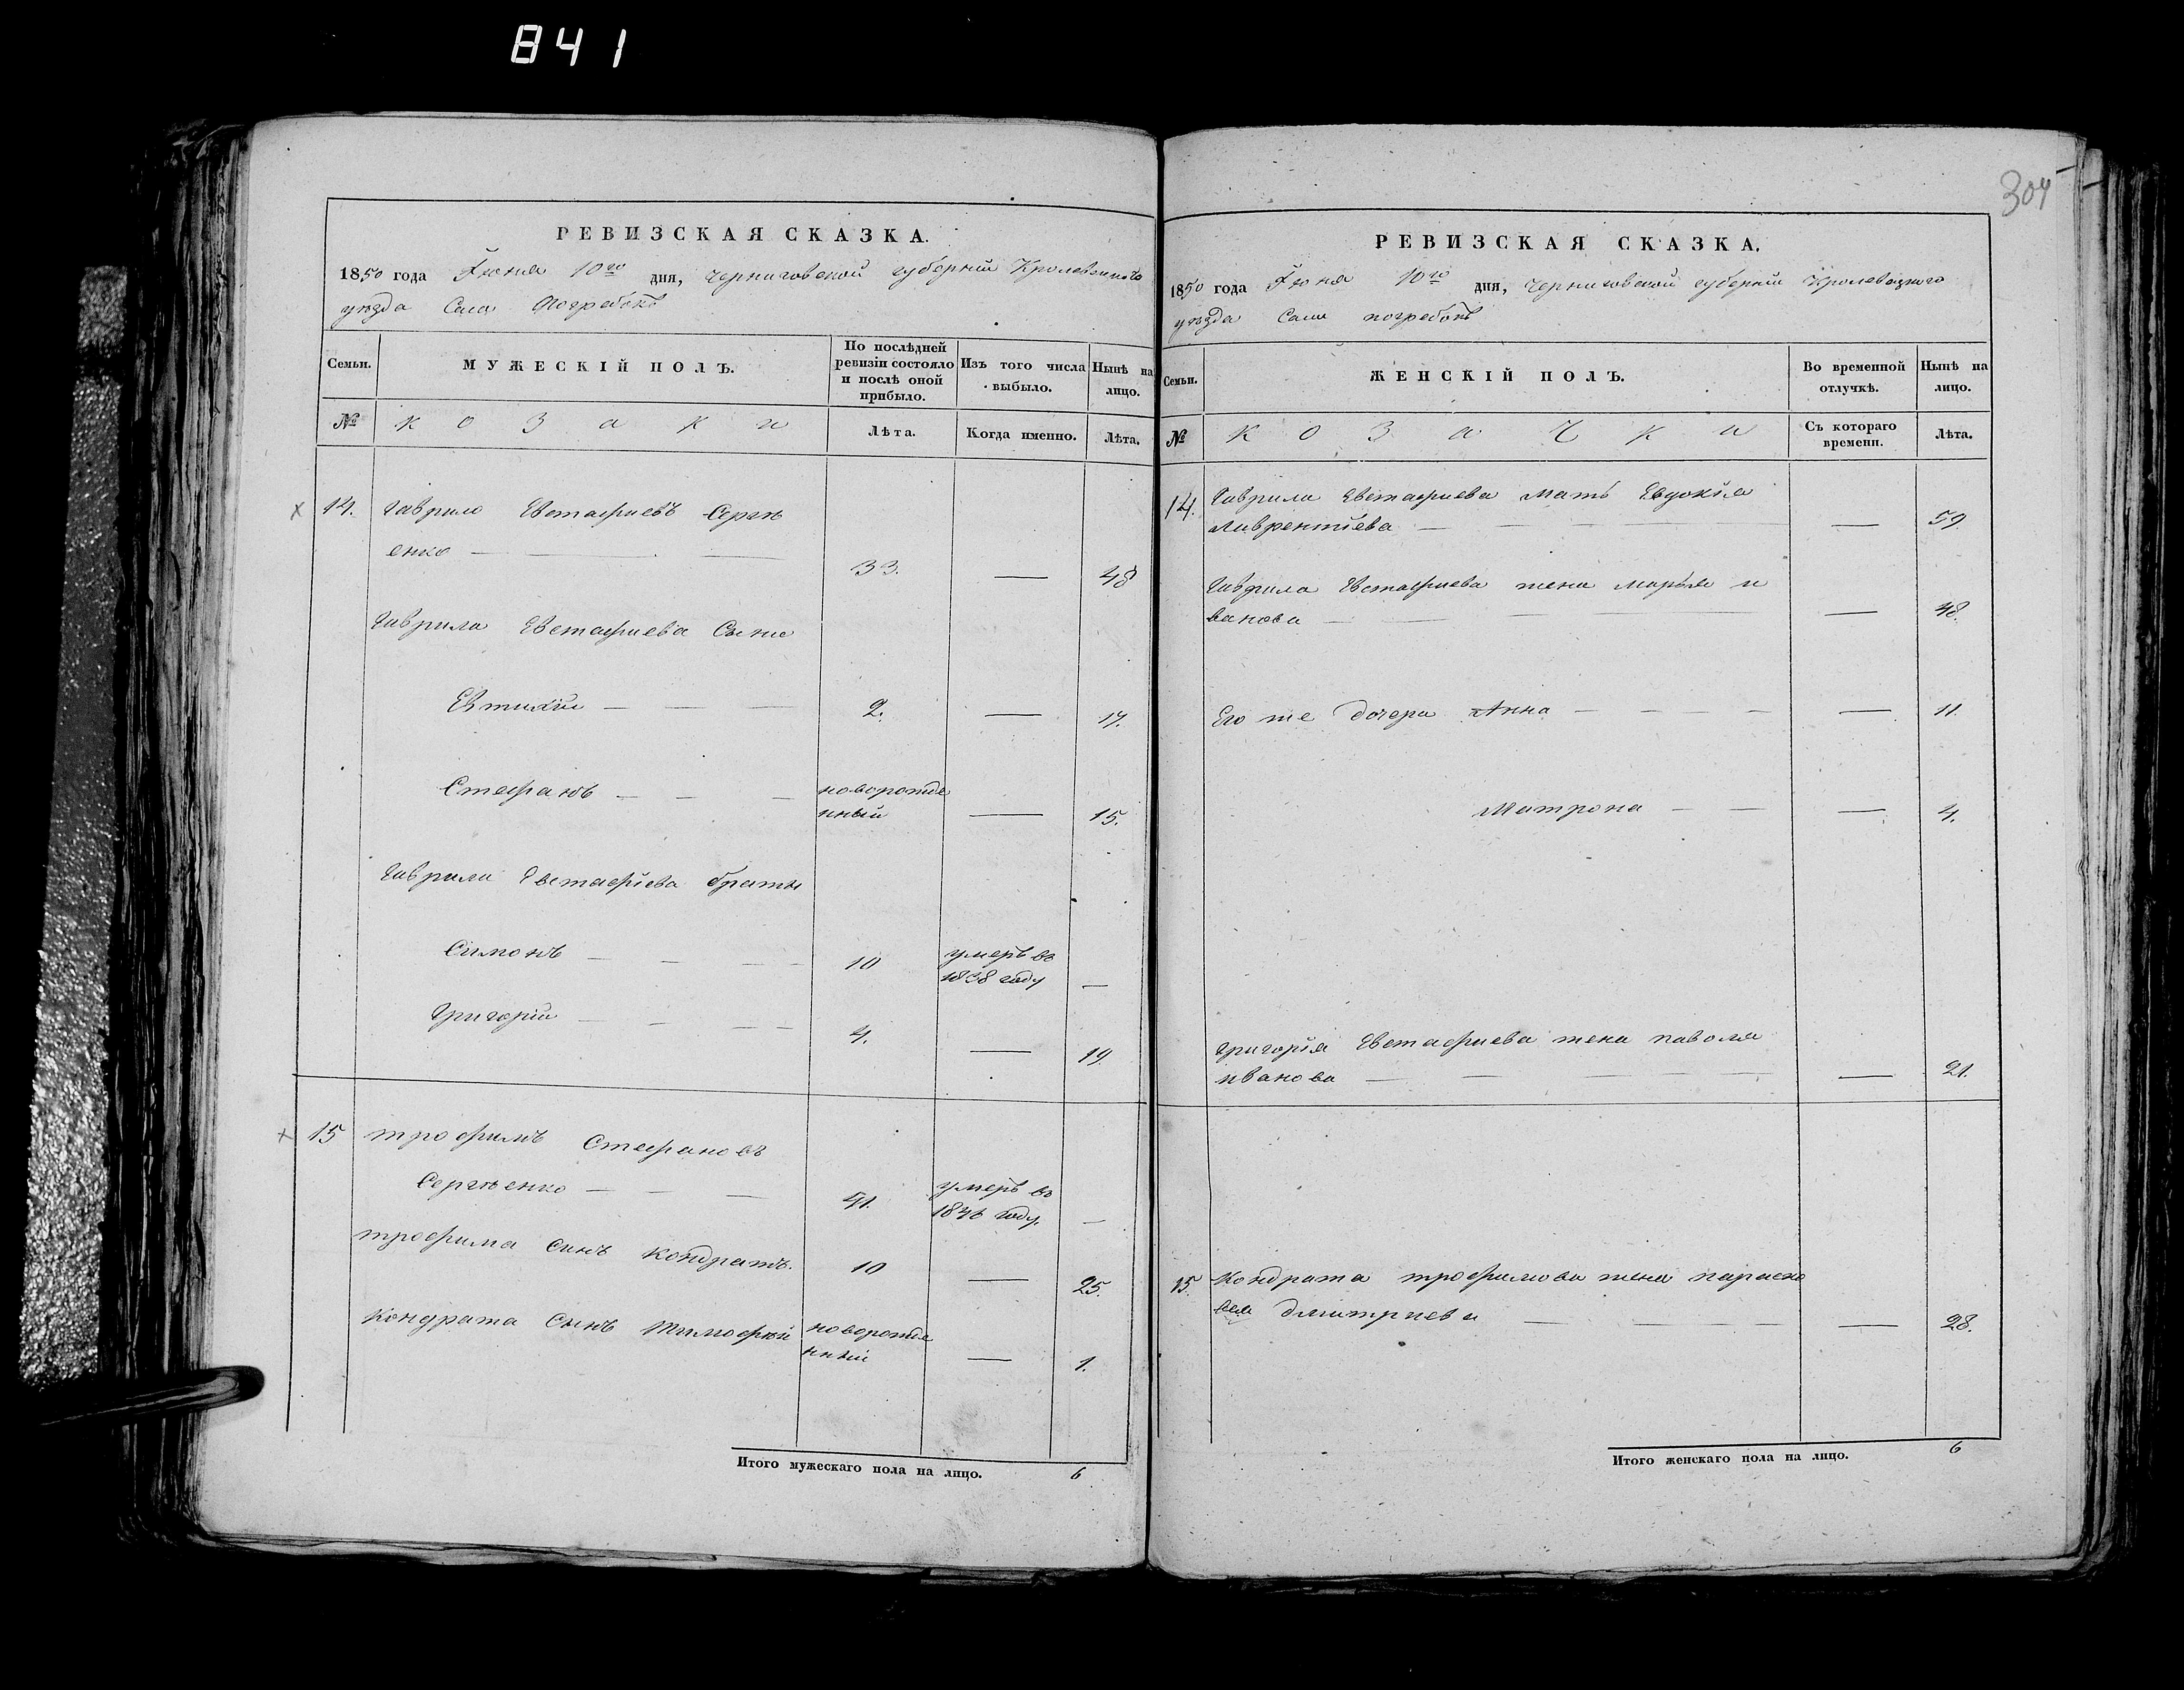 841
304
РЕВИЗСКАЯ СКАЗКА.
1850 года Іюня 10го дня, Черниговской губерніи Кролевецкого
уѣзда Села Погребокъ
Семьи.
МУЖЕСКІЙ ПОЛЪ.
По послѣдней
ревизіи состояло
и послѣ оной
прибыло.
Изъ того числа
выбыло.
Нынѣ на
лицо.
№ козаки Лѣта. Когда именно. Лѣта.
14. Гаврило Евстафиевъ Сергѣ
енко — — — 33. — 48
Гаврила Евстафиева Сыни
Евтихій — — — 2. — 17.
Стефанъ — — — новорожде
нный — 15.
Гаврили Евстафіева браты
Симонъ — — — 10 умеръ въ
1838 году —
Григорій — — — 4. — 19.
15 трофимъ Стефановъ
Сергѣенко — — — 41. умеръ въ
1846 году. —
трофима Синъ Кондратъ. 10 — 25.
Кондрата Сынъ Тимофѣй новорожде
нный — 1.
Итого мужескаго пола на лицо. 6
РЕВИЗСКАЯ СКАЗКА.
1850 года Іюня 10го дня, Черниговской губерніи Кролевецкого
уѣзда Села погребокъ
Семьи.
ЖЕНСКІЙ ПОЛЪ.
Во временной
отлучкѣ.
Нынѣ на
лицо.
№ козачки Съ котораго
времени. Лѣта.
14. Гаврили Евстафиева мать Евдокія
Лаврентіева — — — — 59.
Гаврила Евстафиева жена марья и
ванова — — — — — 48.
Его же дочери Анна — — — — — 11.
Матрона — — — 4.
Григорія Евстафиева жена паволя
иванова — — — — — 21.
15. Кондрата трофимова жена параско
вея дмитриева — — — — 28.
Итого женскаго пола на лицо. 6